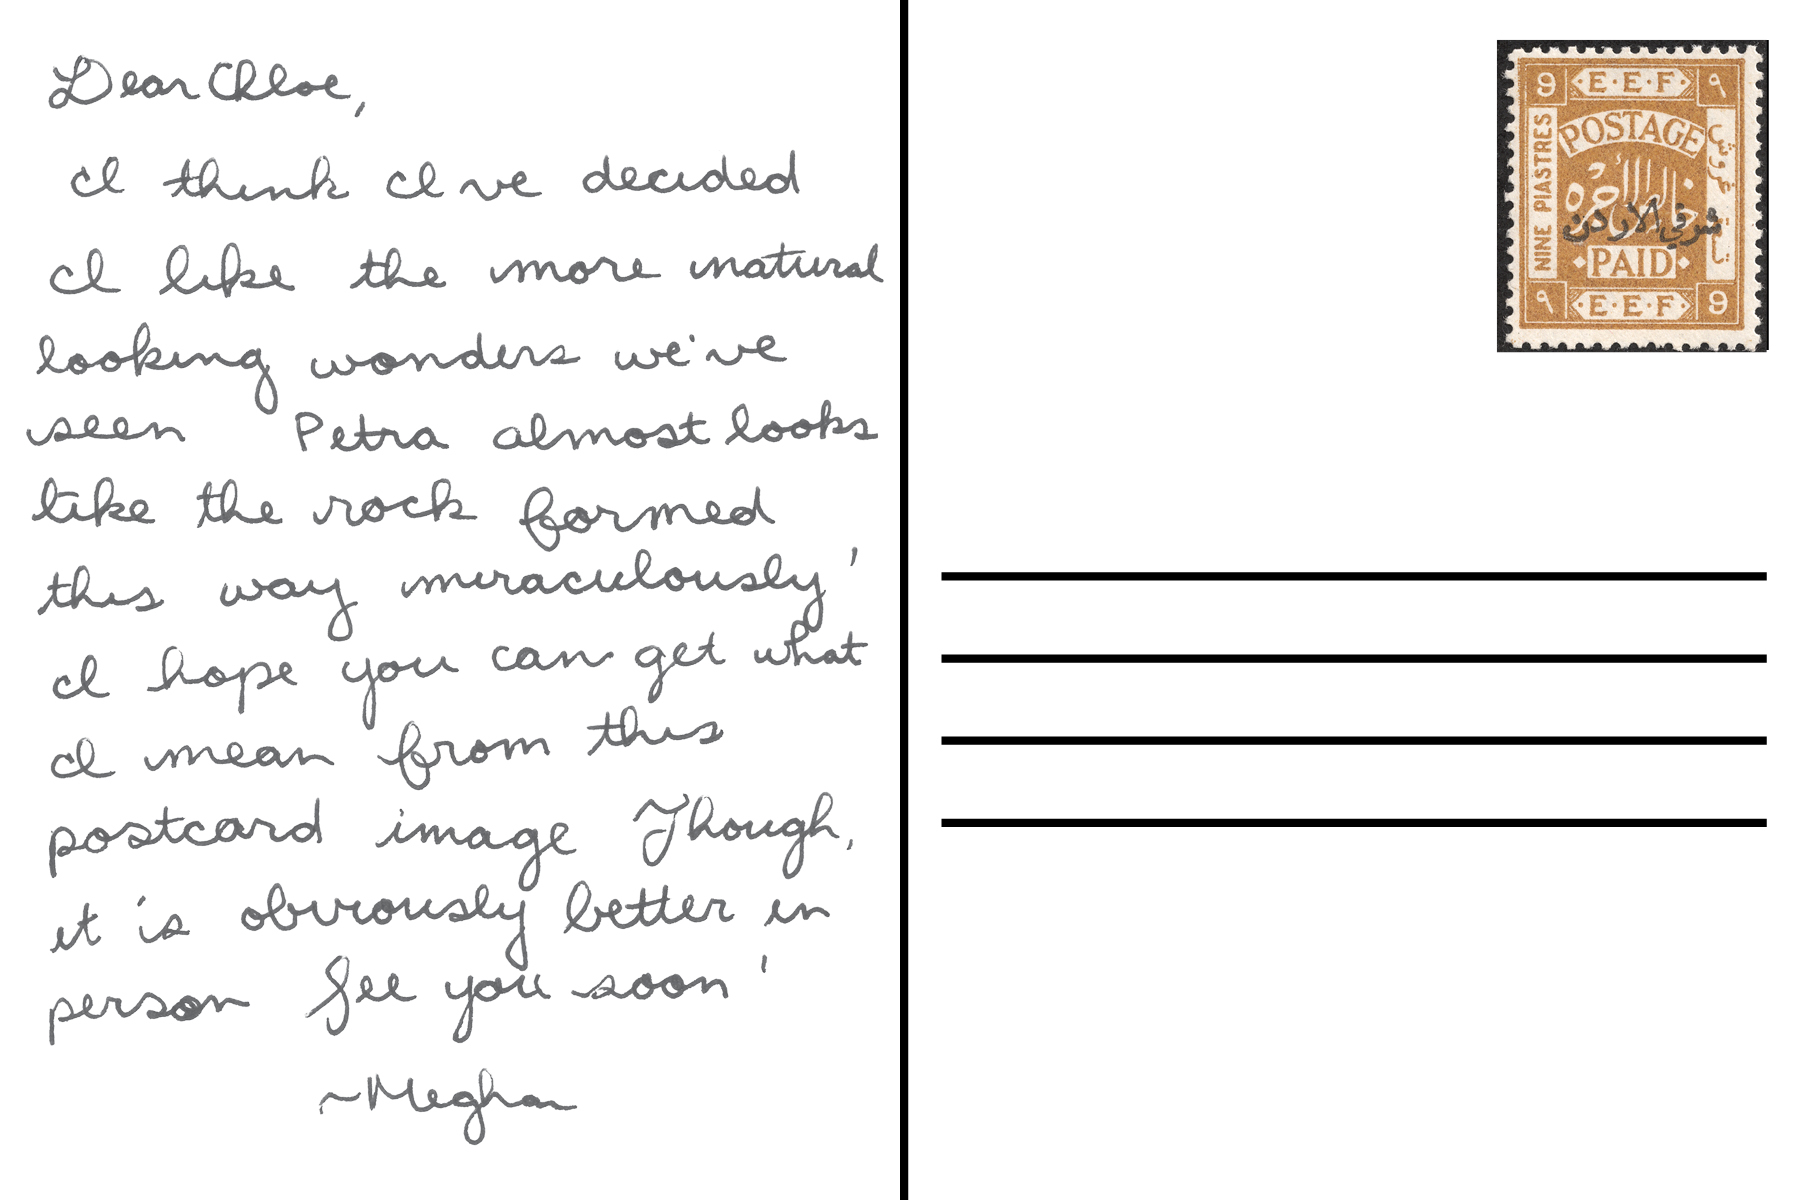 Dear Chloe,
I think I've decided
I like the more natural
looking wonders we've
seen Petra almost looks
like the rock formed
this way miraculously'
I hope you can get what
I mean from this
postcard image Though,
it is obviously better in
person See you soon'
~Meghan
9 E·E·F ٩
POSTAGE
NINE PIASTRES
خالص الاجره
تسعة غروش
شرقي الاردن
PAID
٩ E·E·F 9